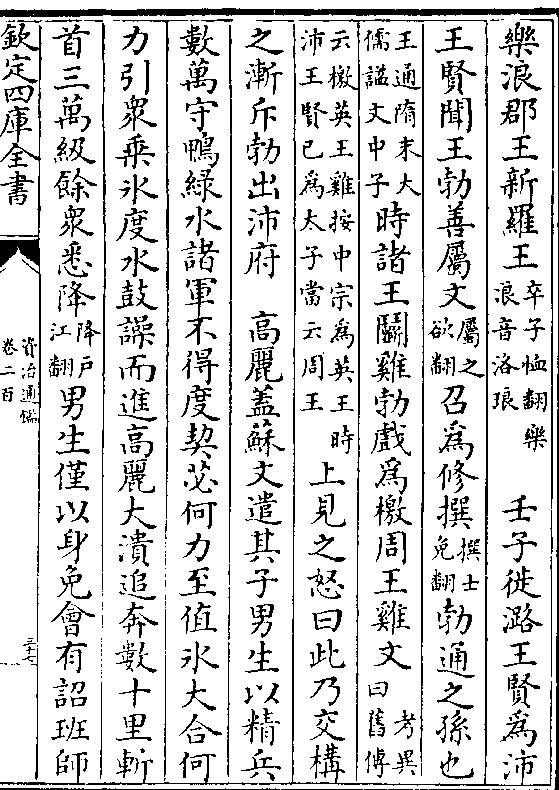 樂浪郡王新羅王卒子恤翻樂浪音洛琅 壬子徙潞王賢為沛
王賢聞王勃善屬文屬之欲翻召為修撰撰士免翻勃通之孫也
王通隋末大儒謚文中子時諸王鬭雞勃戲為檄周王雞文考異曰舊傳
云檄英王雞按中宗為英王時沛王賢已為太子當云周王上見之怒曰此乃交構
之漸斥勃出沛府 高麗蓋蘇文遣其子男生以精兵
數萬守鴨綠水諸軍不得度契苾何力至值氷大合何
力引衆乘氷度水鼓譟而進高麗大潰追奔數十里斬
首三萬級餘衆悉降降戸江翻男生僅以身免會有詔班師
欽定四庫全書
資治通鑑
卷二百
三十七